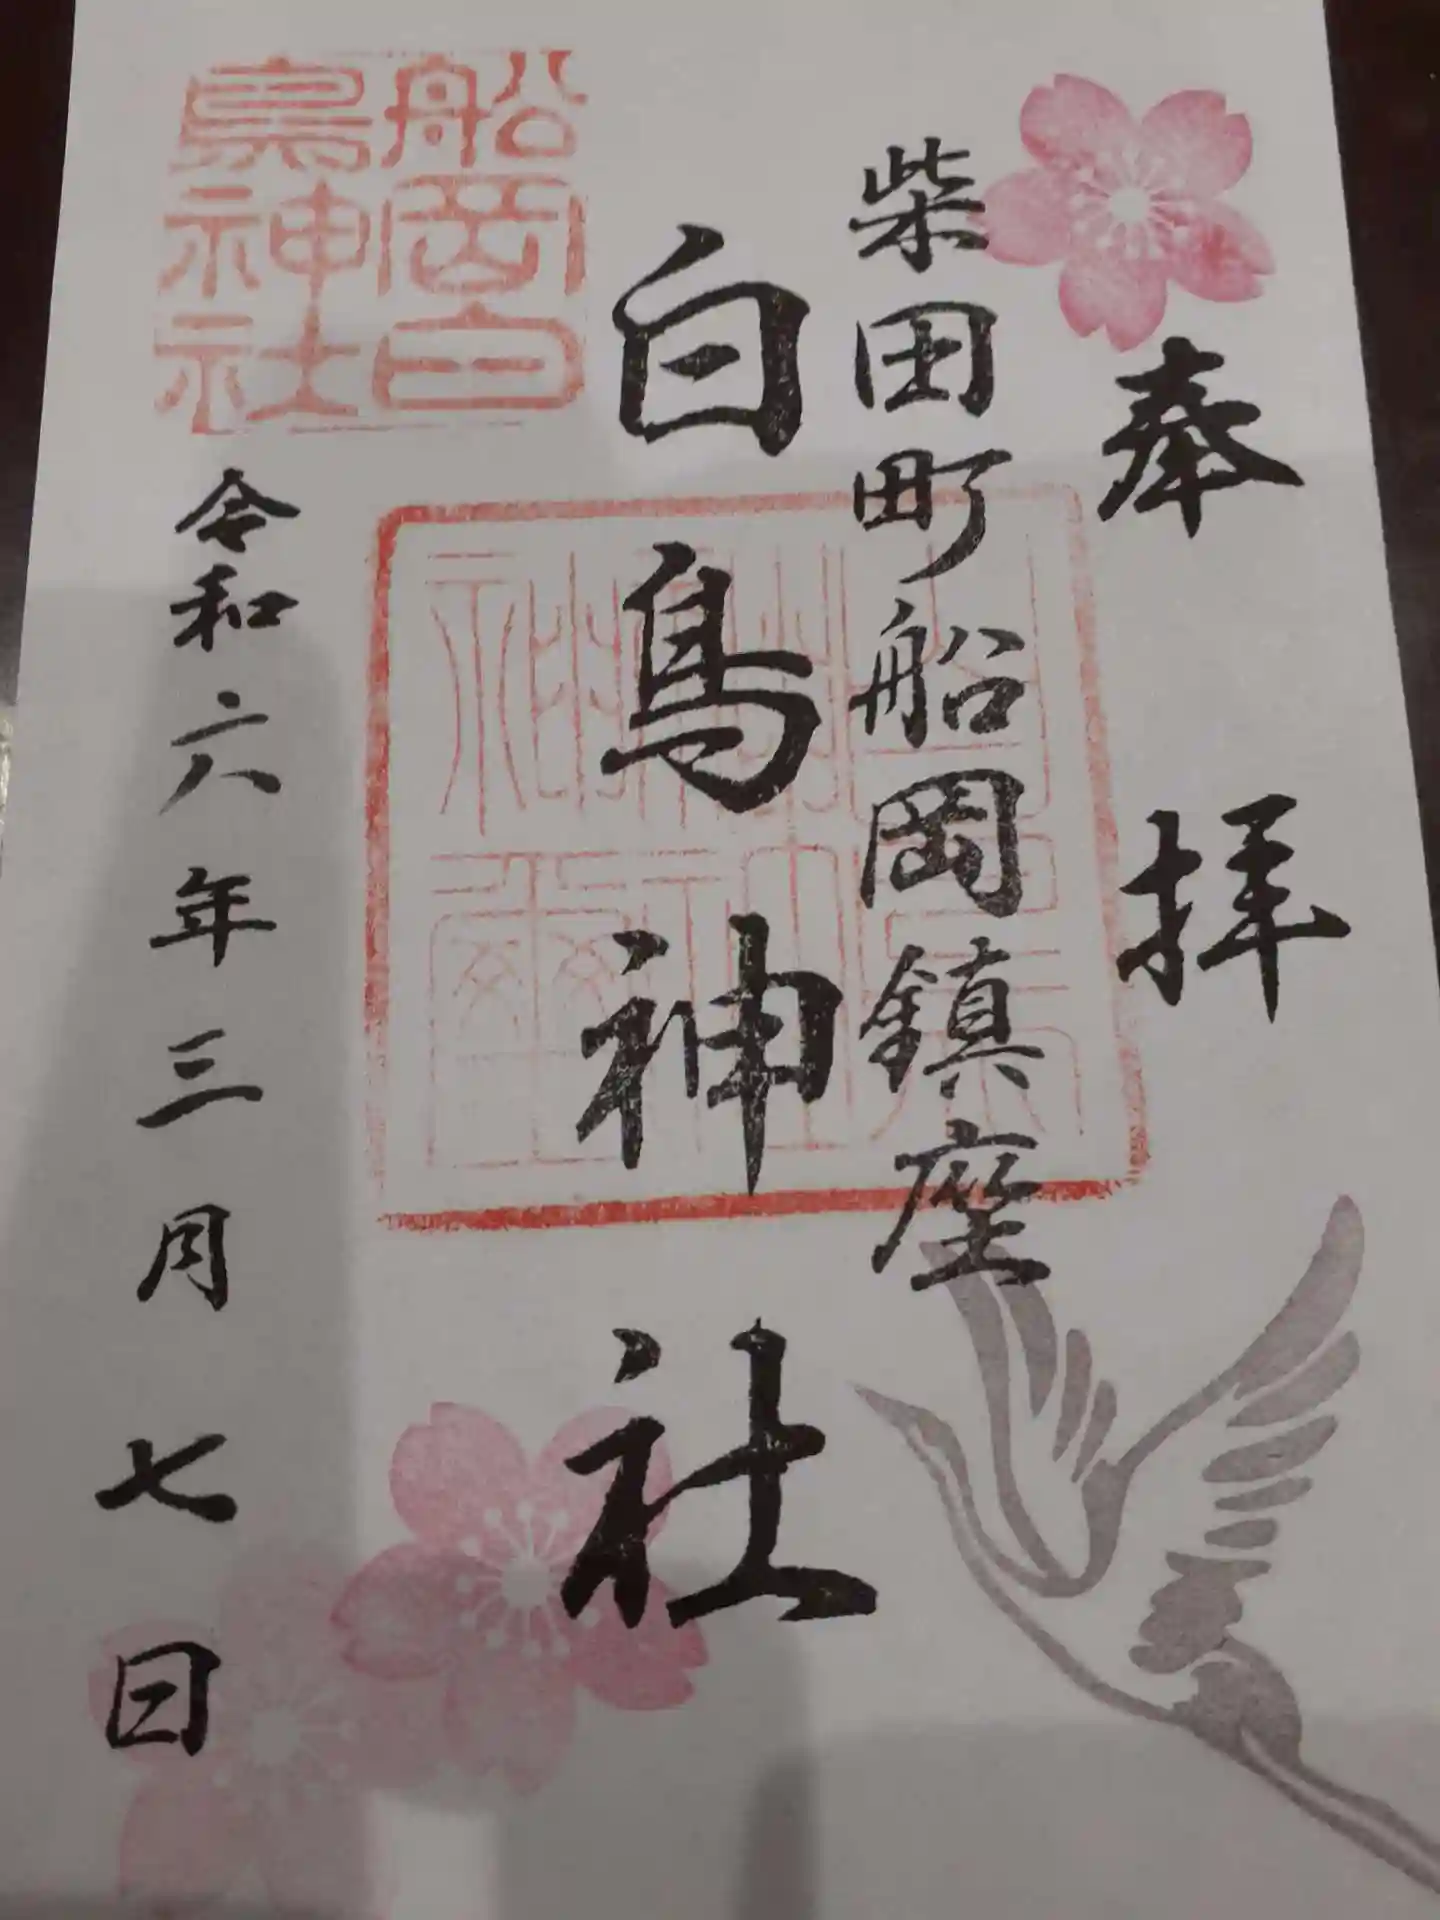 奉拝
柴田町船岡鎮座
白鳥神社
船岡白
鳥神社
令和六年三月七日